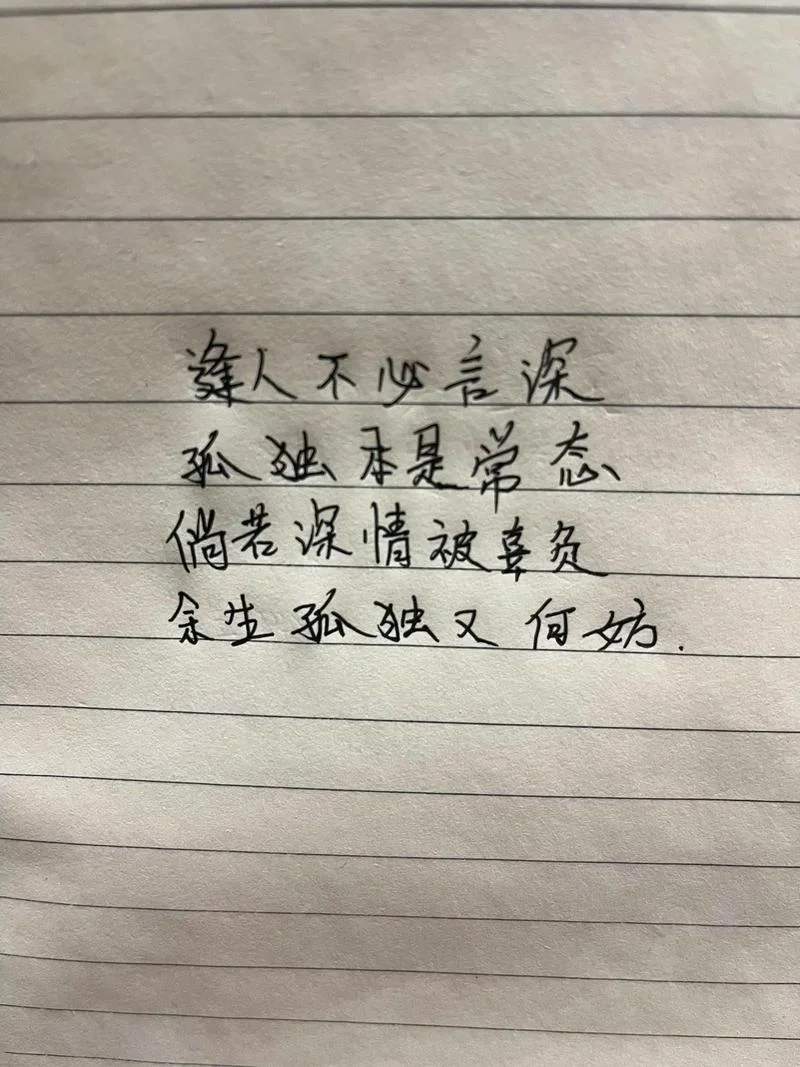 逢人不必言深
孤独本是常态
倘若深情被喜负
余生孤独又何妨.